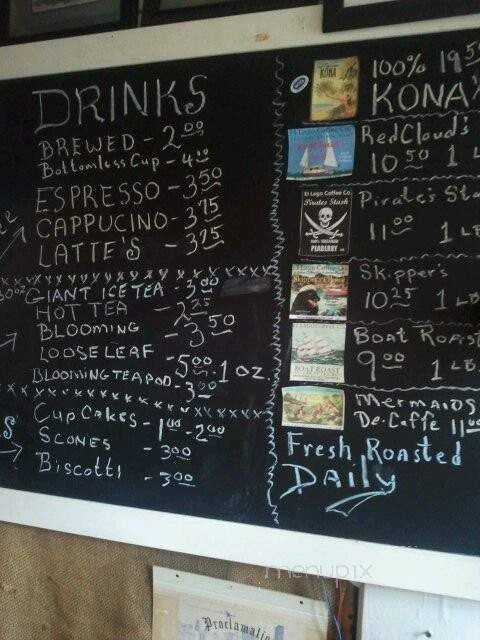 DRINKS
BREWED - 2.00
Bottomless Cup - 4.00
ESPRESSO - 3.50
CAPPUCINO - 3.75
LATTE'S - 3.75
GIANT ICE TEA - 3.00
HOT TEA - 2.25
BLOOMING - 3.50
LOOSE LEAF - 5.00 - 1 oz.
BLOOMING TEA POD - 3.00
CUP CAKES - 1.00 - 2.00
SCONES - 3.00
BISCOTTI - 3.00
100% 19.50
KONA
KONA'
El Lago Coffee Co.
Red Cloud's
10.50 1 L
El Lago Coffee Co.
Pirates Stash
PEABERRY
Pirate's Sta
11.00 1 LB
Skipper's
10.25 1 LB
BOAT ROAST
Boat Roast
9.00 1 LB
Mermaids
De-Caffe 11.00
Fresh Roasted
Daily
menupix
Proclamatio